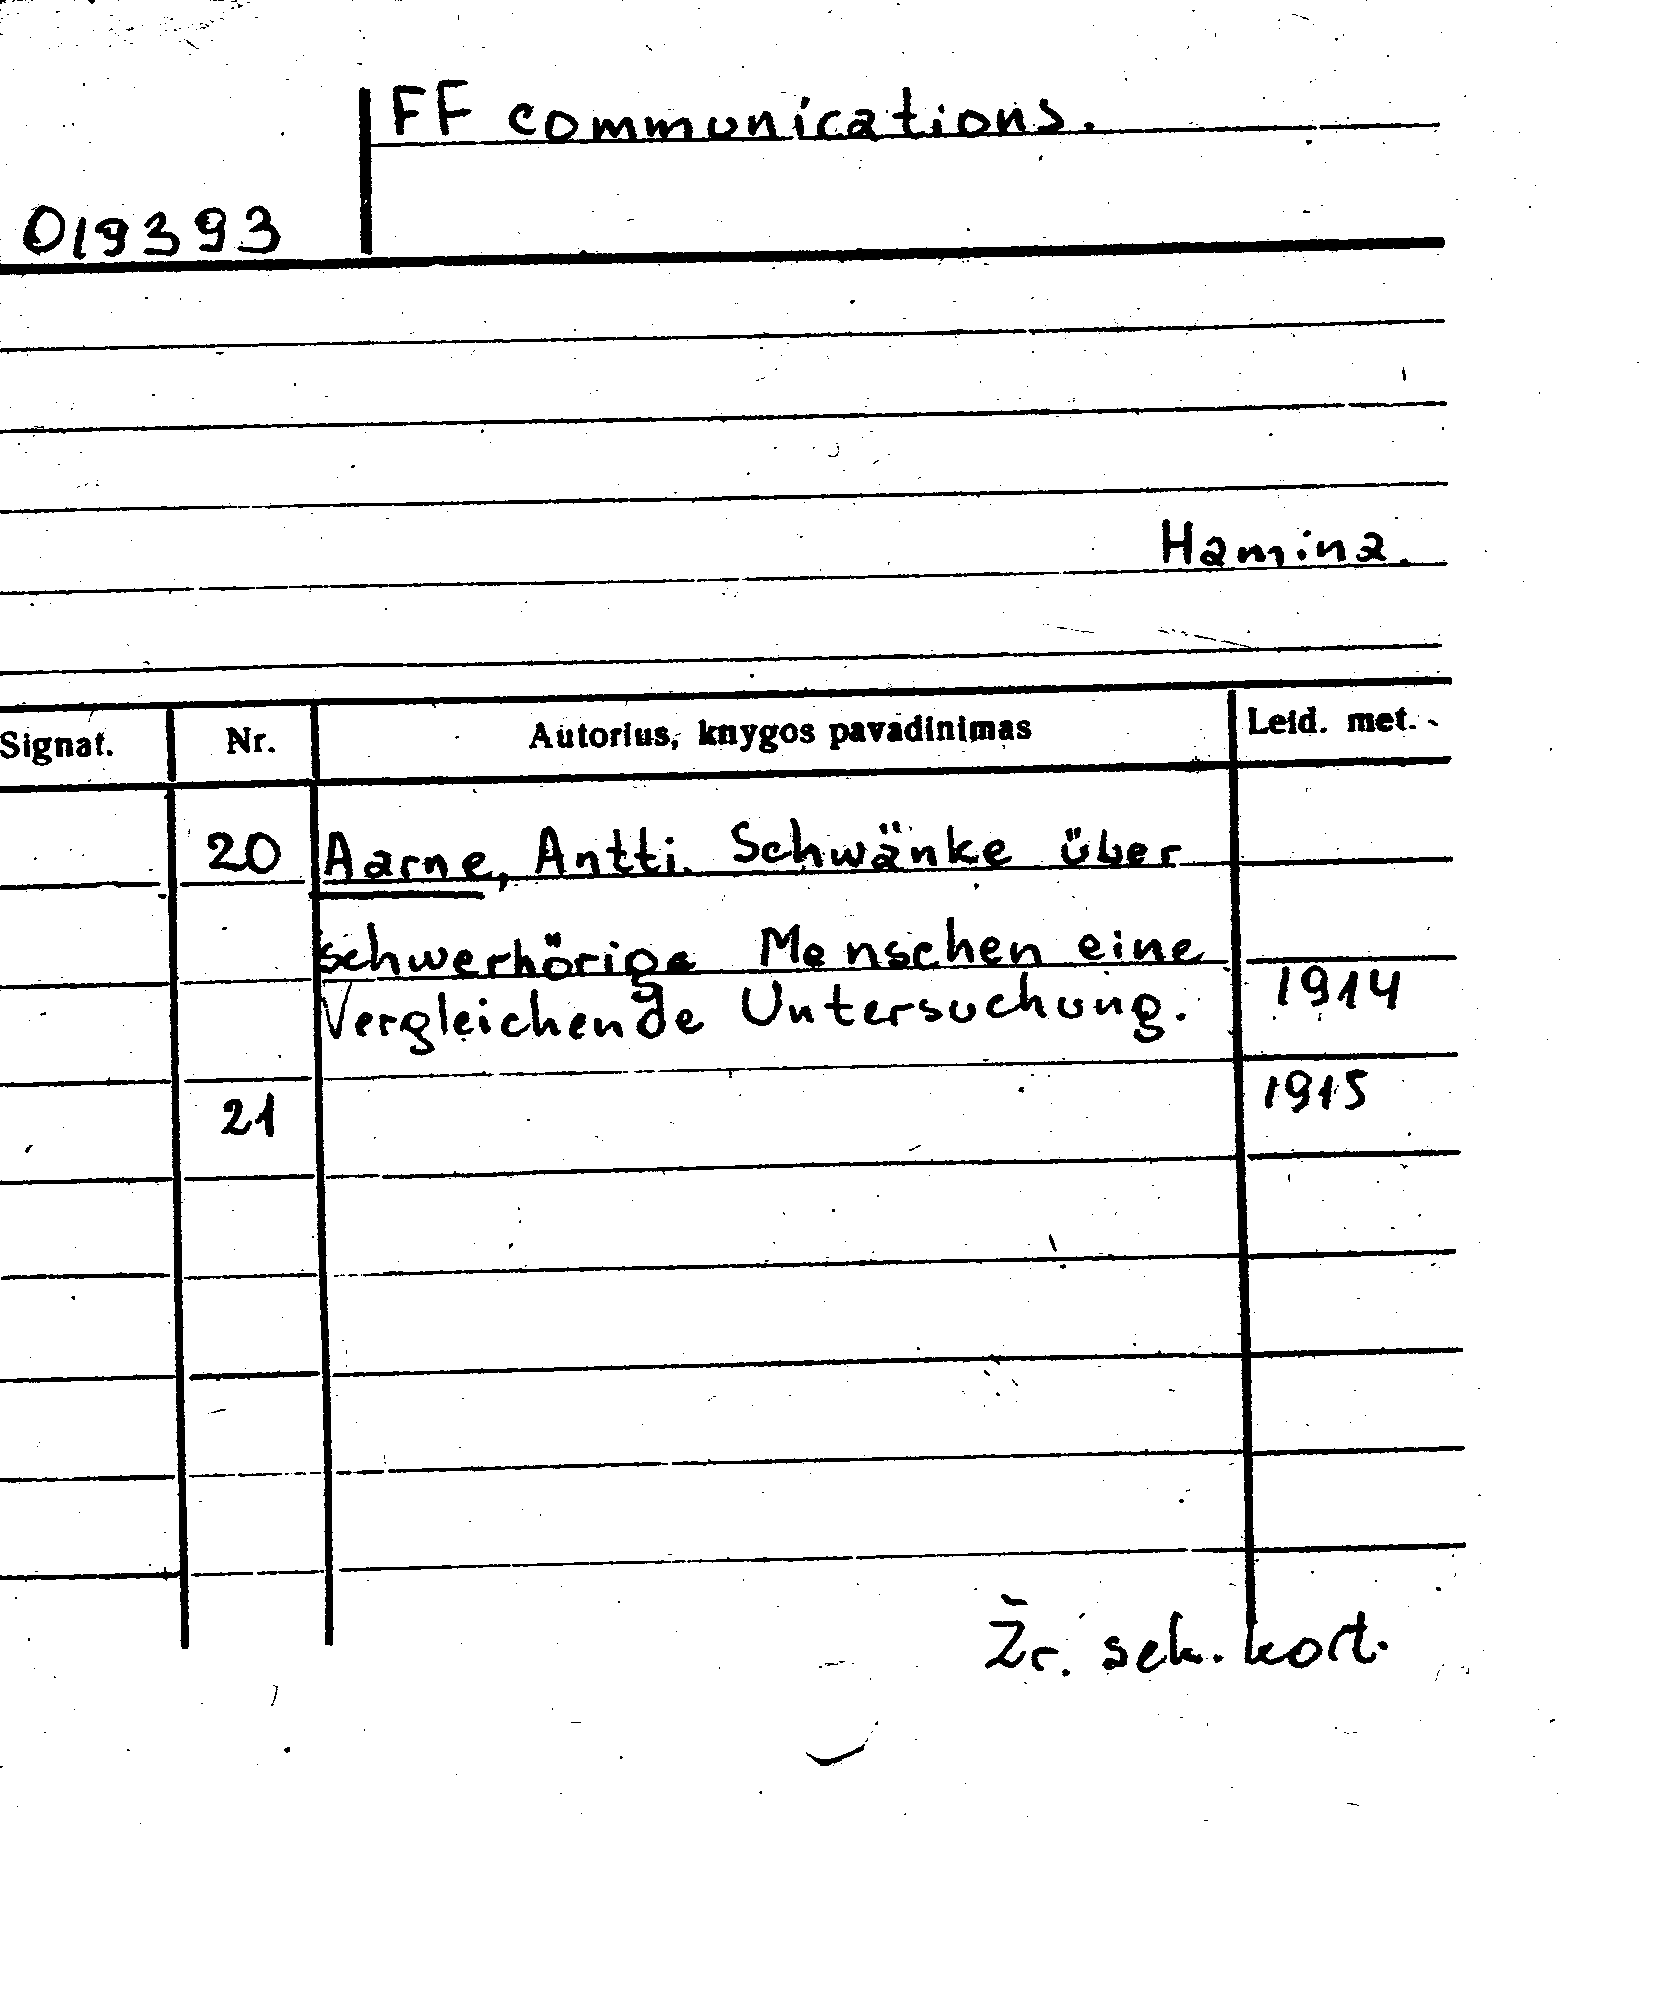 FF communications.
019393
Hamina.
Signat. Nr. Autorius, knygos pavadinimas Leid. met.
20 Aarne, Antti. Schwänke über
schwerhörige Menschen eine
Vergleichende Untersuchung. 1914
21 1915
Žr. sek. kort.